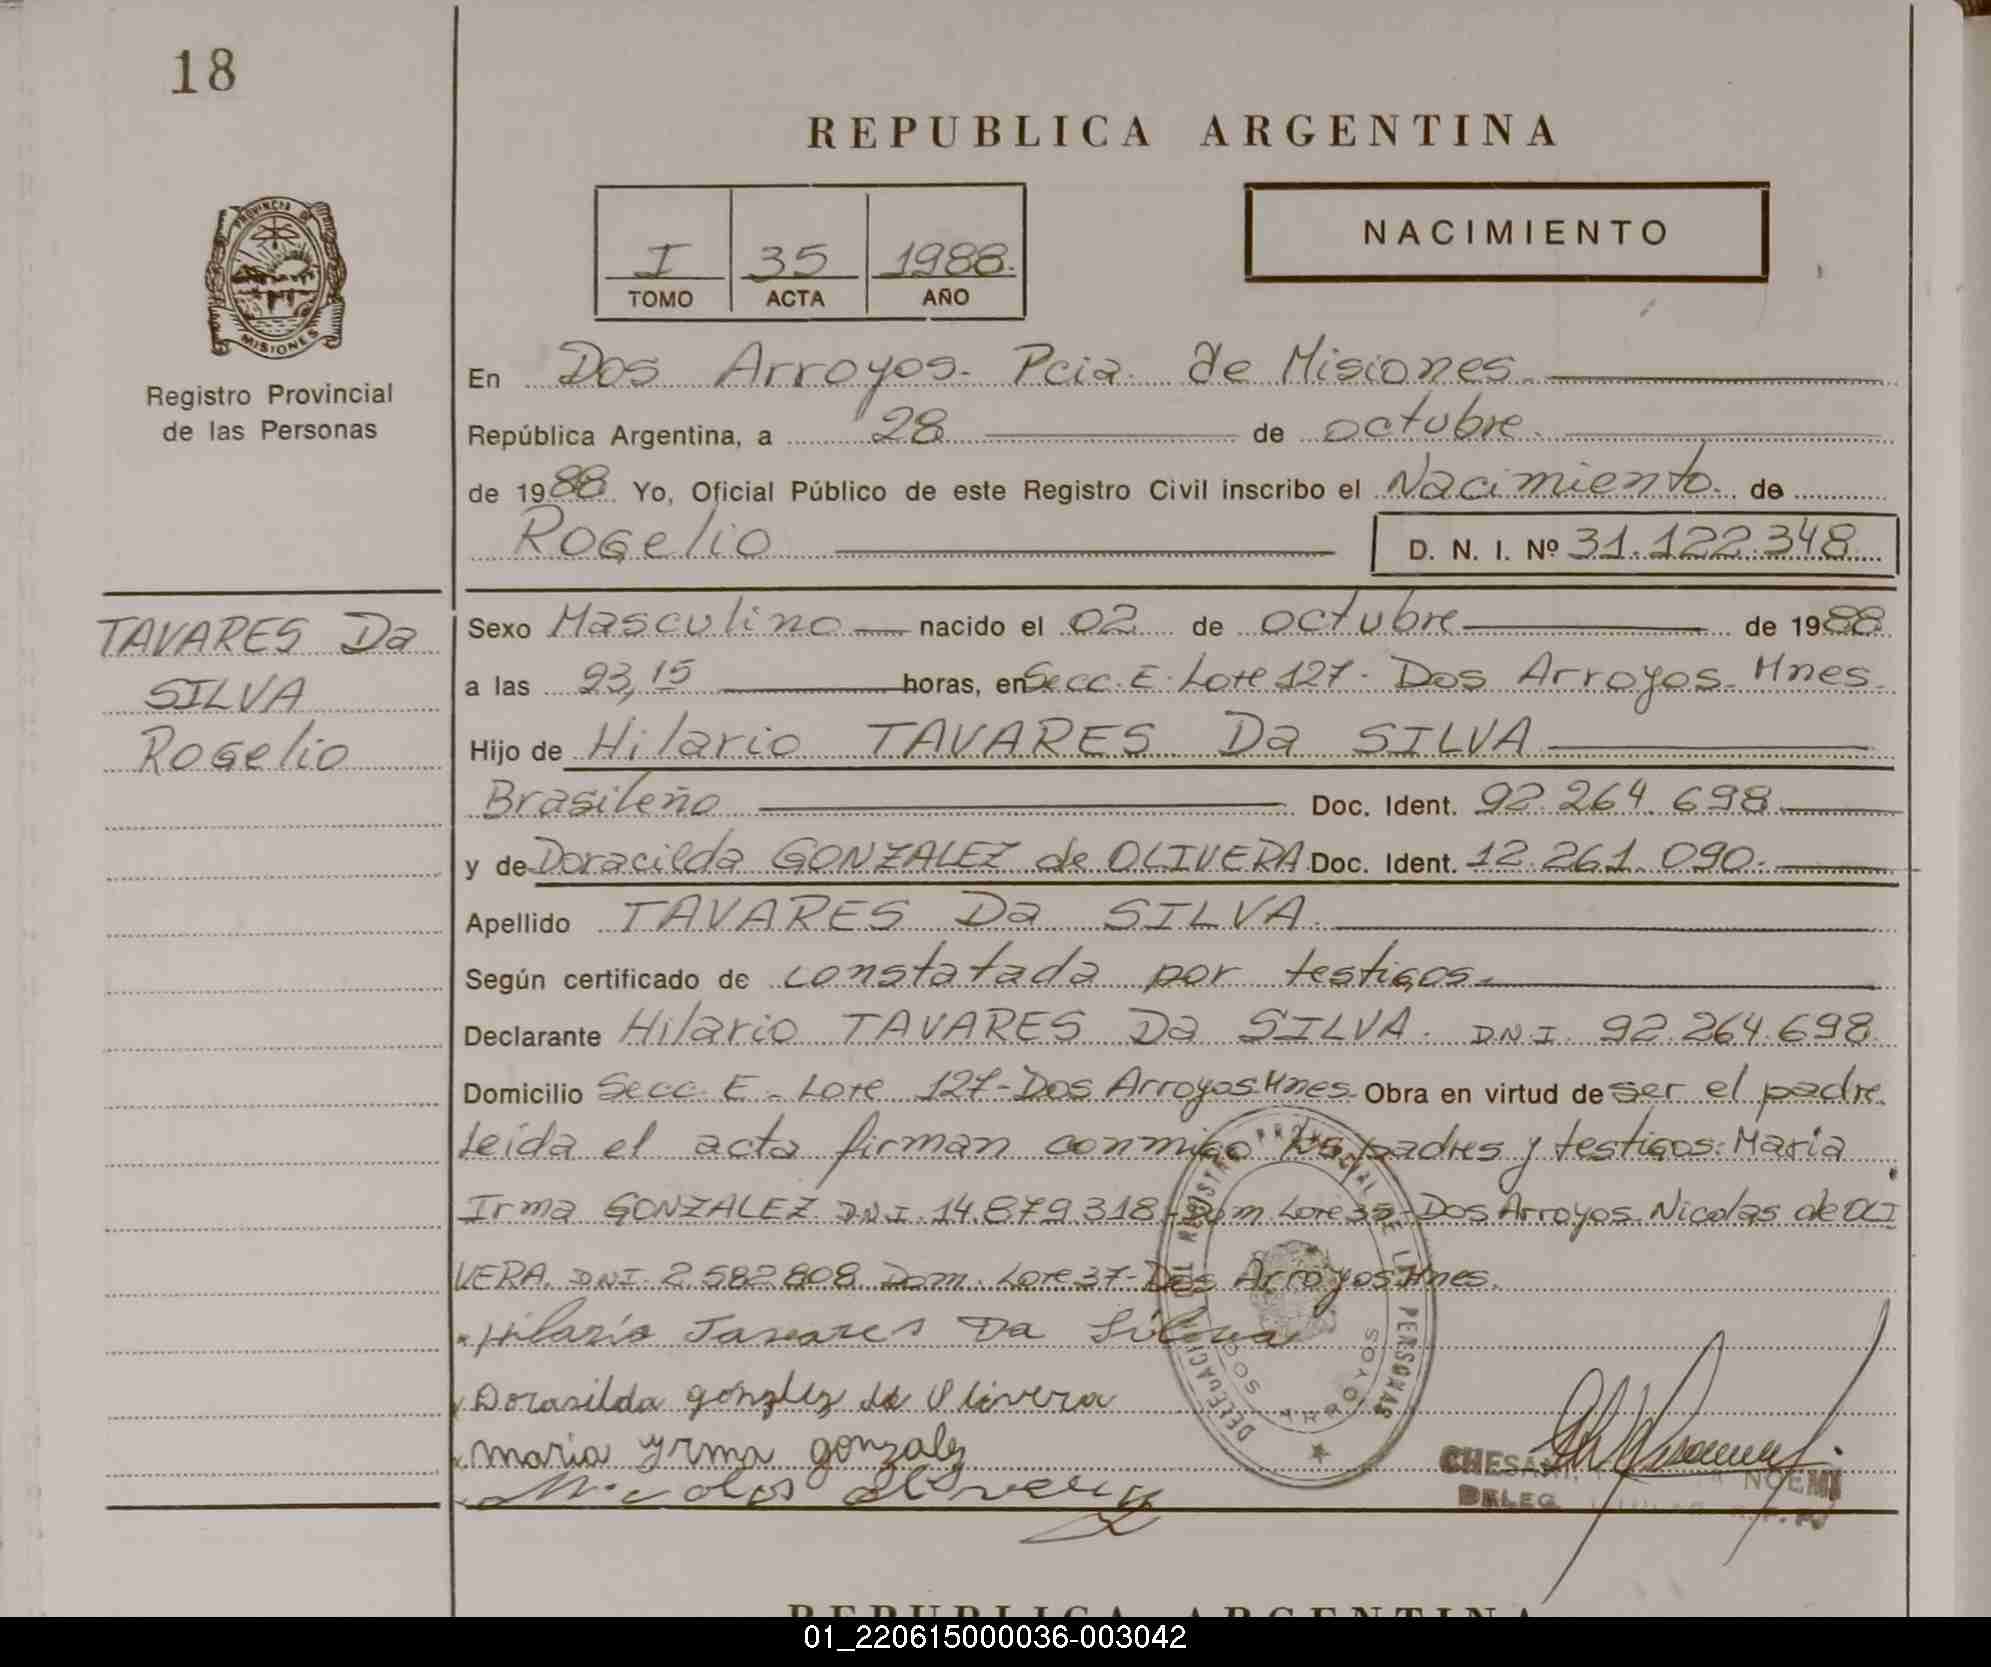 18
REPUBLICA ARGENTINA
PROVINCIA DE
MISIONES
NACIMIENTO
I 35 1988.
TOMO ACTA AÑO
Registro Provincial
de las Personas
En Dos Arroyos. Pcia. de Misiones
República Argentina, a 28 de octubre.
de 1988. Yo, Oficial Público de este Registro Civil inscribo el Nacimiento de
Rogelio D. N. I. Nº 31.122.348
TAVARES Da
SILVA
Rogelio
Sexo Masculino nacido el 02 de octubre de 1988
a las 23,15 horas, en Secc. E. Lote 127. Dos Arroyos. Mnes.
Hijo de Hilario TAVARES Da SILVA
Brasileño Doc. Ident. 92.264.698
y de Doracilda GONZALEZ de OLIVERA Doc. Ident. 12.261.090.
Apellido TAVARES Da SILVA.
Según certificado de constatada por testigos.
Declarante Hilario TAVARES Da SILVA. DNI. 92.264.698
Domicilio Secc. E. Lote 127-Dos Arroyos Mnes. Obra en virtud de ser el padre.
Leída el acta firman conmigo los padres y testigos: Maria
Irma GONZALEZ. DNI. 14.879.318-Dom. Lote 35-Dos Arroyos. Nicolas de OLI
VERA. DNI. 2.582.808. Dom. Lote 37-Dos Arroyos Mnes.
Hilario Tavares Da Silva
Dorasilda gonzlez de Olivera
maria yrma gonzalez
Nicolas olivera
DELEGACION REGISTRO PROVINCIAL DE LAS PERSONAS
DOS ARROYOS
NOEMI
DELEG.
REPUBLICA ARGENTINA
01_220615000036-003042